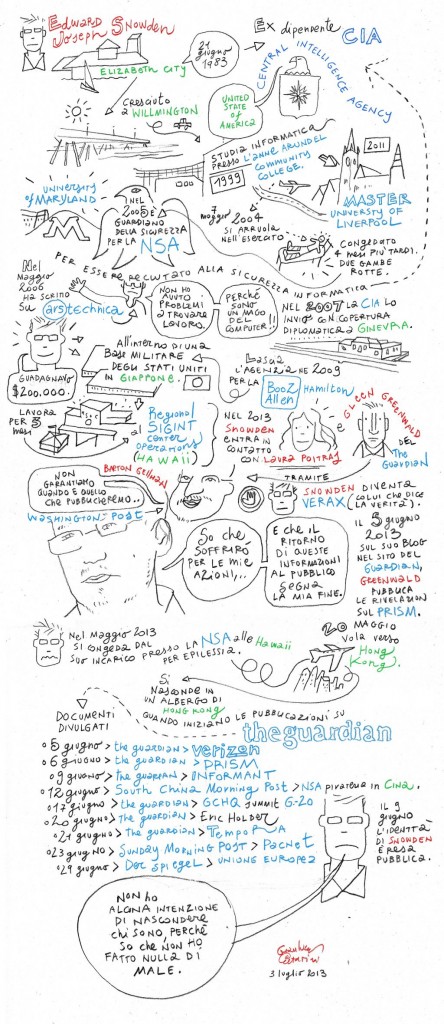 EDWARD
JOSEPH SNOWDEN
21
giugno
1983
EX dipendente
CIA
CENTRAL INTELLIGENCE AGENCY
ELIZABETH CITY
UNITED
STATE OF
AMERICA
CRESCIUTO
A WILLMINGTON
STUDIA INFORMATICA
PRESSO L'ANNE ARUNDEL
COMMUNITY
COLLEGE.
1999
2011
MASTER
UNIVERSITY OF
LIVERPOOL
UNIVERSITY
OF MARYLAND
NEL
2005 È
GUARDIANO
DELLA SICUREZZA
PER LA NSA
7
MAGGIO 2004
SI ARRUOLA
NELL'ESERCITO
CONGEDATO
4 MESI PIU' TARDI.
DUE GAMBE
ROTTE.
PER ESSERE RECLUTATO ALLA SICUREZZA INFORMATICA
Nel
MAGGIO
2006
HA SCRITTO
SU ars technica
NON HO
AVUTO
PROBLEMI
A TROVARE
LAVORO.
PERCHÉ
SONO
UN MAGO
DEL
COMPUTER!!
NEL 2007 LA CIA LO
INVIÒ CON COPERTURA
DIPLOMATICA A GINEVRA.
GUADAGNAVO
$200.000.
All'INTERNO DI UNA
BASE MILITARE
DEGLI STATI UNITI
IN GIAPPONE.
Lascia
L'AGENZIA NE 2009
PER LA Booz
Allen HAMILTON
LAVORA
PER 3
MESI
al
Regional
SIGINT
center
operations
(HAWAII)
NEL 2013
SNOWDEN
ENTRA IN
CONTATTO
CON LAURA POITRAS
e
GLEEN GREENWALD
DEL
The
Guardian
TRAMITE
NON
GARANTIAMO
QUANDO E QUELLO
CHE PUBBLICHEREMO..
BARTON GELLMAN
WASHINGTON-POST
SNOWDEN DIVENTA
VERAX (COLUI CHE DICE
LA VERITÀ).
IL 5 giugno
2013
SUL SUO BLOG
NEL SITO DEL
GUARDIAN,
GREENWALD
PUBBLICA
LE RIVELAZIONI
SUL PRISM.
So che
SOFFRIRÒ
PER LE MIE
AZIONI,..
E CHE IL
RITORNO
DI QUESTE
INFORMAZIONI
AL PUBBLICO
SEGNA
LA MIA FINE.
Nel MAGGIO 2013
SI CONGEDA DAL
SUO INCARICO PRESSO LA NSA alle Hawaii
PER EPILESSIA.
20 MAGGIO
VOLA VERSO
HONG
KONG.
Si
NASCONDE IN
UN ALBERGO DI
HONG KONG
QUANDO INIZIANO LE PUBBLICAZIONI SU
theguardian
DOCUMENTI
DIVULGATI
5 giugno > the guardian > verizon
6 giugno > the guardian > PRISM
9 giugno > the guardian > INFORMANT
12 giugno > South China Morning Post > NSA pirateria in Cina.
17 giugno > the guardian > GCHQ summit G-20
20 giugno > the guardian > Eric Holder
21 giugno > the guardian >
23 giugno > Sunday MORNING POST > Pacnet
29 giugno > Der Spiegel > UNIONE EUROPEA
IL 9
giugno
L'IDENTITÀ
DI SNOWDEN
È RESA
PUBBLICA.
NON HO
ALCUNA INTENZIONE
DI NASCONDERE
chi SONO, PERCHÉ
So che NON HO
FATTO NULLA DI
MALE.
3 luglio 2013